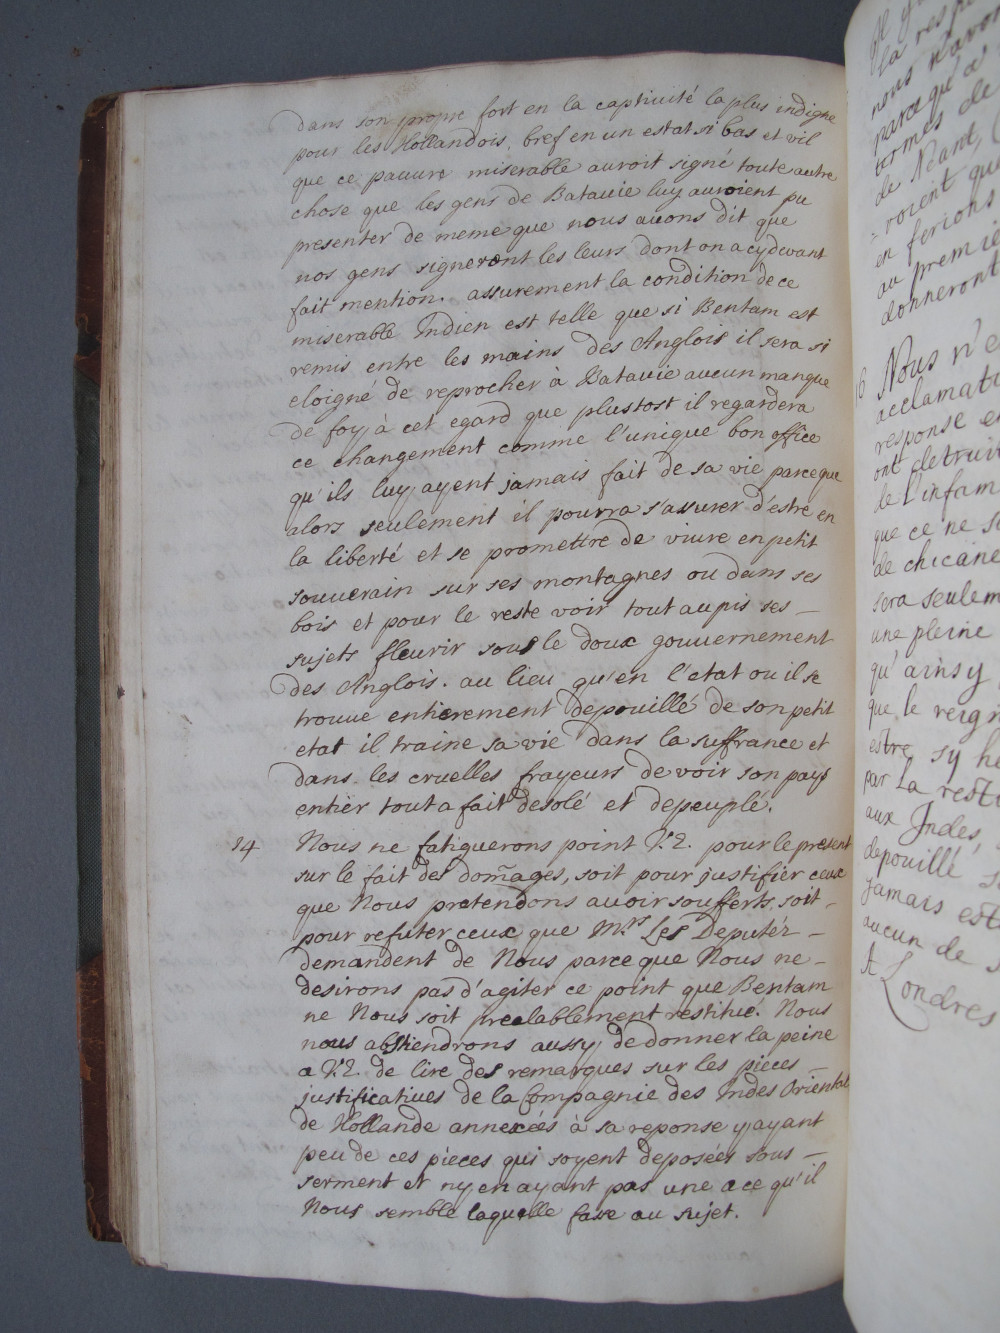 dans son propre fort en la captiuité la plus indigne
pour les Hollandois, bref en un estat si bas et vil
que ce pauure miserable auroit signé toute autre
chose que les gens de Batauie luy auroient pu
presenter de meme que nous auons dit que
nos gens signeront les leurs dont on a cydevant
fait mention. assurement la condition de ce
miserable Indien est telle que si Bentam est
remis entre les mains des Anglois il sera si
eloigné de reprocher à Batauie aucun manque
de foy à cet egard que plustost il regardera
ce changement comme l'unique bon office
qu'ils luy ayent jamais fait de sa vie parce que
alors seulement il pourra s'assurer d'estre en
la liberté et se promettre de viure en petit
souuerain sur ses montagnes ou dans ses
bois et pour le reste voir tout aupis ses –
sujets fleurir sous le doux gouuernement
des Anglois. au lieu qu'en l'etat ou il se
trouue entierement depouillé de son petit
etat il traine sa vie dans la suffrance et
dans les cruelles frayeurs de voir son pays
entier tout a fait desolé et depeuplé.
14 Nous ne fatiguerons point V.E. pour le present
sur le fait des dom̃ages, soit pour justifier ceux
que Nous pretendons auoir soufferts, soit –
pour refuter ceux que M.rs Les Deputéz –
demandent de Nous parce que Nous ne –
desirons pas d'agiter ce point que Bentam
ne Nous soit prealablement restitué. Nous
nous abstiendrons aussy de donner la peine
a V.E. de lire des remarques sur les pieces
justificatiues de la Compagnie des Indes Oriental
de Hollande annexéés à sa reponse y ayant
peu de ces pieces qui soyent deposées sous –
serment et ny en ayant pas une a ce qu'il
Nous semble laquelle fasse au sujet.
la resp
nous n'avon
parce qu'a
termes de
de Neant,
voient qu
en ferions
au premie
donneront
16 Nous n'e
acclamati
response e
ont detruit
de l'infam
que ce ne s
de chicane
sera seulem
une pleine
qu'ainsy
que le reign
estre sy he
par la resti
aux Indes,
depouillé s
jamais est
aucun de
A Londres